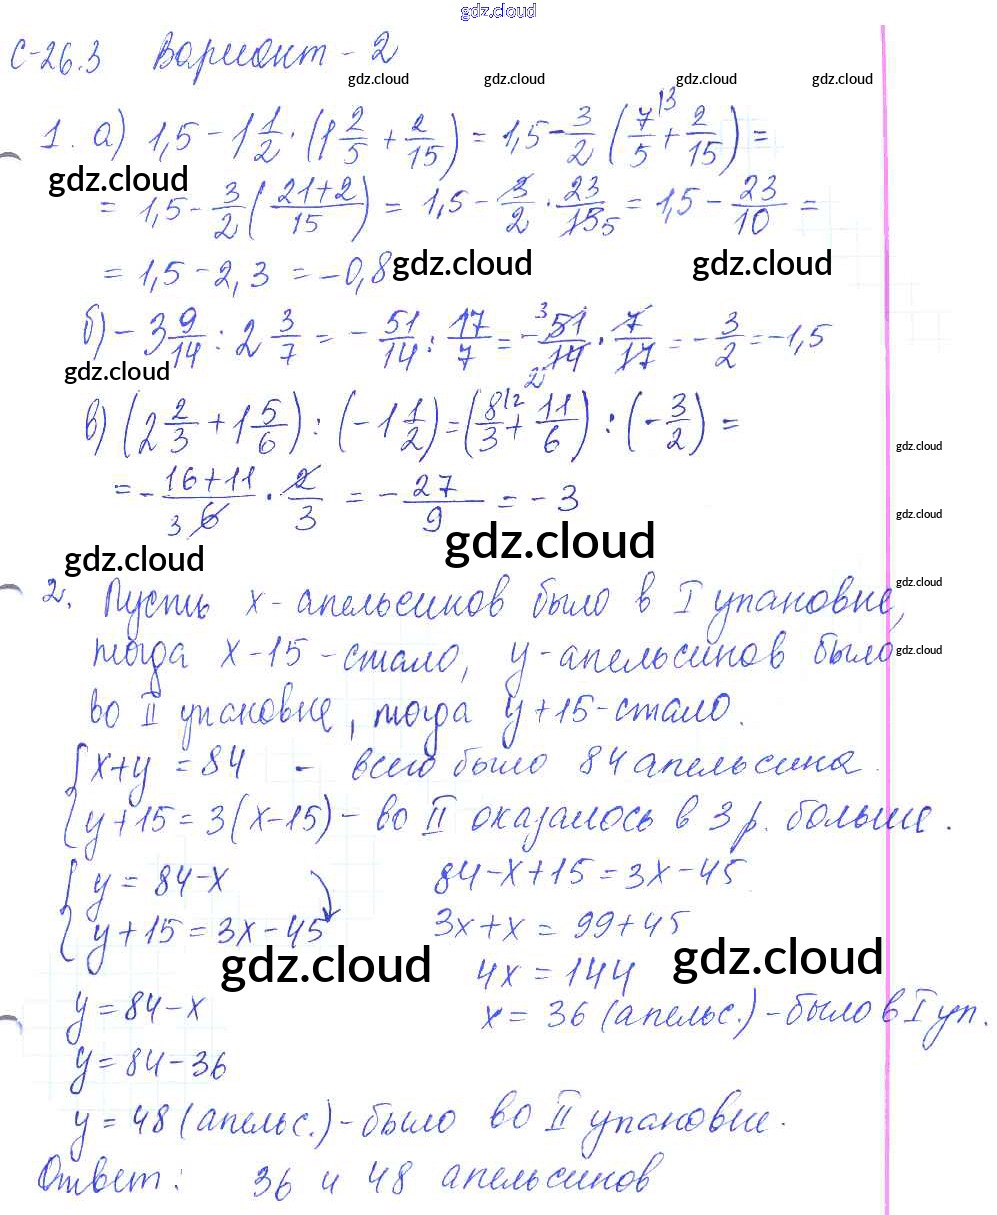 gdz.cloud
С-26.3 Вариант - 2
gdz.cloud gdz.cloud gdz.cloud gdz.cloud
1. а) 1,5 - 1 1/2 · (1 2/5 + 2/15) = 1,5 - 3/2 (7/5 |3 + 2/15) =
gdz.cloud
= 1,5 - 3/2 ((21+2)/15) = 1,5 - 3/2 · 23/15 5 = 1,5 - 23/10 =
= 1,5 - 2,3 = -0,8
gdz.cloud gdz.cloud
б) -3 9/14 : 2 3/7 = - 51/14 : 17/7 = - 3 51/14 2 · 7/17 = - 3/2 = -1,5
gdz.cloud
в) (2 2/3 + 1 5/6) : (-1 1/2) = (8/3 |2 + 11/6) : (- 3/2) =
gdz.cloud
= - (16+11)/6 3 · 2/3 = - 27/9 = -3
gdz.cloud
gdz.cloud gdz.cloud
2. Пусть x - апельсинов было в I упаковке,
gdz.cloud
тогда x-15 - стало, y - апельсинов было
gdz.cloud
во II упаковке, тогда y+15 - стало.
{ x+y = 84 - всего было 84 апельсина.
{ y+15 = 3(x-15) - во II оказалось в 3 р. больше.
{ y = 84-x 84-x+15 = 3x-45
{ y+15 = 3x-45 3x+x = 99+45
gdz.cloud gdz.cloud
4x = 144
y = 84-x x = 36 (апельс.) - было в I уп.
y = 84-36
y = 48 (апельс.) - было во II упаковке.
Ответ: 36 и 48 апельсинов